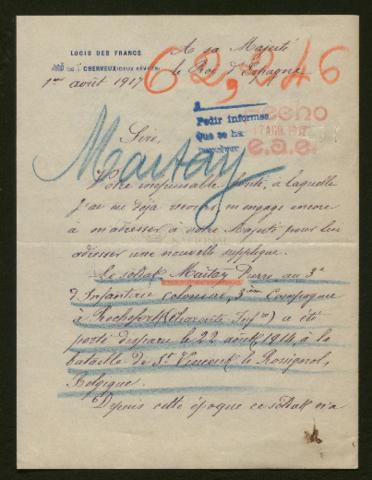 LOGIS DES FRANCS
CHERVEUX (DEUX-SÈVRES)
1er août 1917
A sa Majesté
le Roi d'Espagne
62,246
A
Pedir informes
Que se ha
hecho
17 AGO. 1917
e.a.e.
Sire,
Maitay
Votre inépuisable bonté, à laquelle
j'ai eu déjà recours, m'engage encore
à m'adresser à votre Majesté pour lui
adresser une nouvelle supplique.
Le soldat Maitay Pierre au 3e
d'Infanterie coloniale, 3ème Compagnie
à Rochefort (Charente Infre) a été
porté disparu le 22 août 1914, à la
bataille de St Vincent le Rossignol,
Belgique.
Depuis cette époque ce soldat n'a